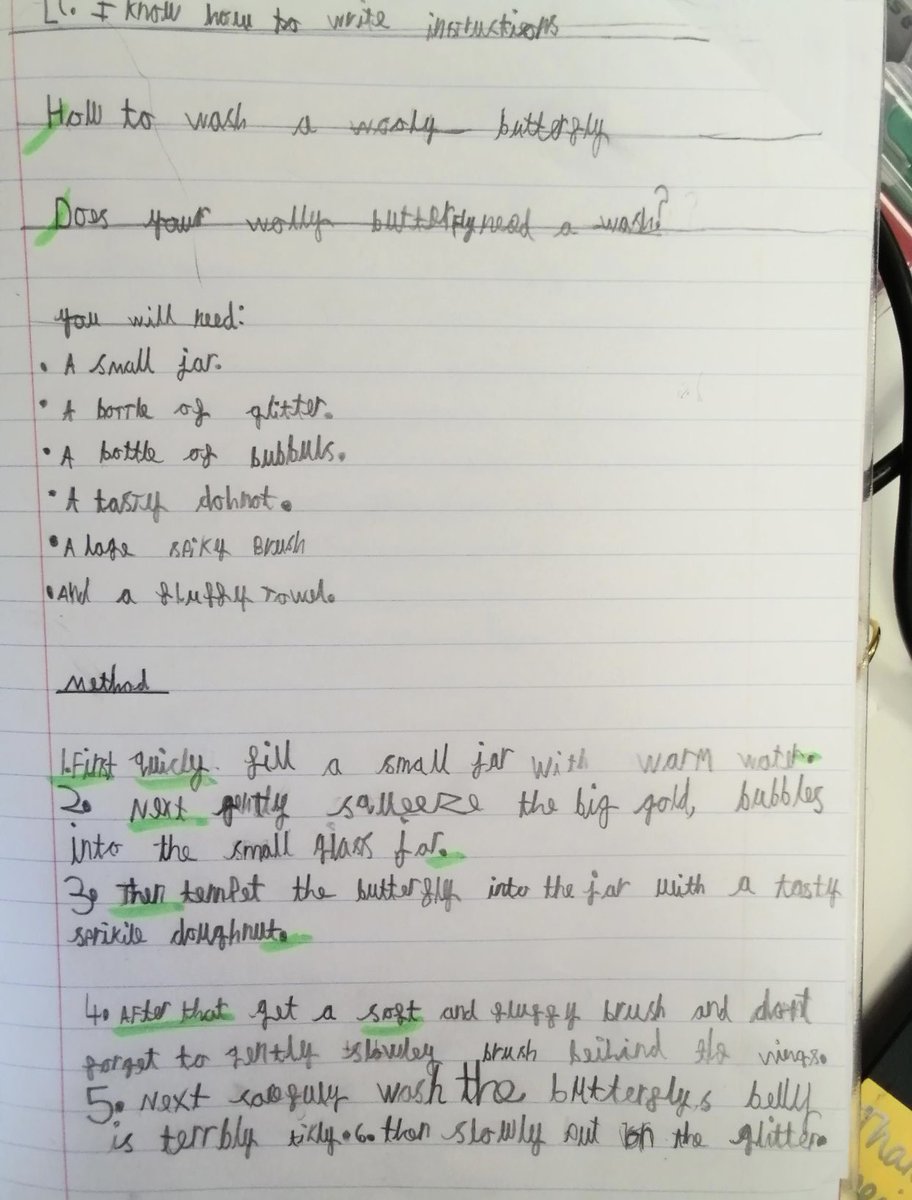 L.I. I know how to write instructisons
How to wash a wooly butterfly
Does your wolly butterfly need a wash?
you will need:
• A small jar.
• A bottle of glitter.
• A bottle of bubbuls.
• A tasty dohnot.
• A lage spiky Brush
• And a fluffy towel.
Method
1. First quicly fill a small jar with warm water.
2. Next gently squeeze the big gold, bubbles
into the small glass jar.
3. Then tempet the butterfly into the jar with a tasty
sprikile doughnut.
4. After that get a soft and fluffy brush and dont
forget to gently slowley brush beihind its wings.
5. Next carefuly wash the butterflys belly
is terrbly tikly. 6. then slowly put on the glitter.